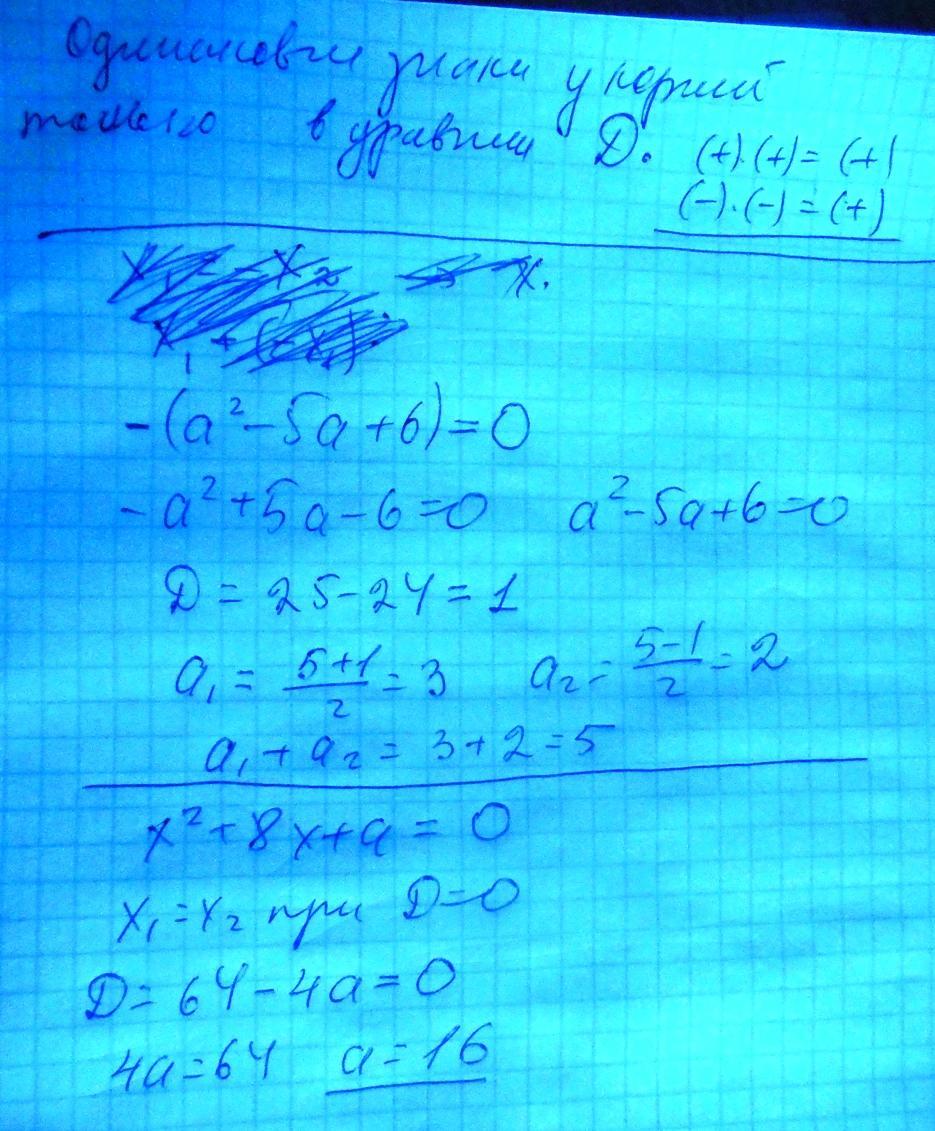 Одинаковые знаки у корней
только в уравнении D. (+)·(+)=(+)
(-)·(-)=(+)
-(a²-5a+6)=0
-a²+5a-6=0 a²-5a+6=0
D = 25-24=1
a₁ = (5+1)/2 = 3 a₂ = (5-1)/2 = 2
a₁ + a₂ = 3+2=5
x²+8x+a=0
x₁=x₂ при D=0
D=64-4a=0
4a=64 a=16